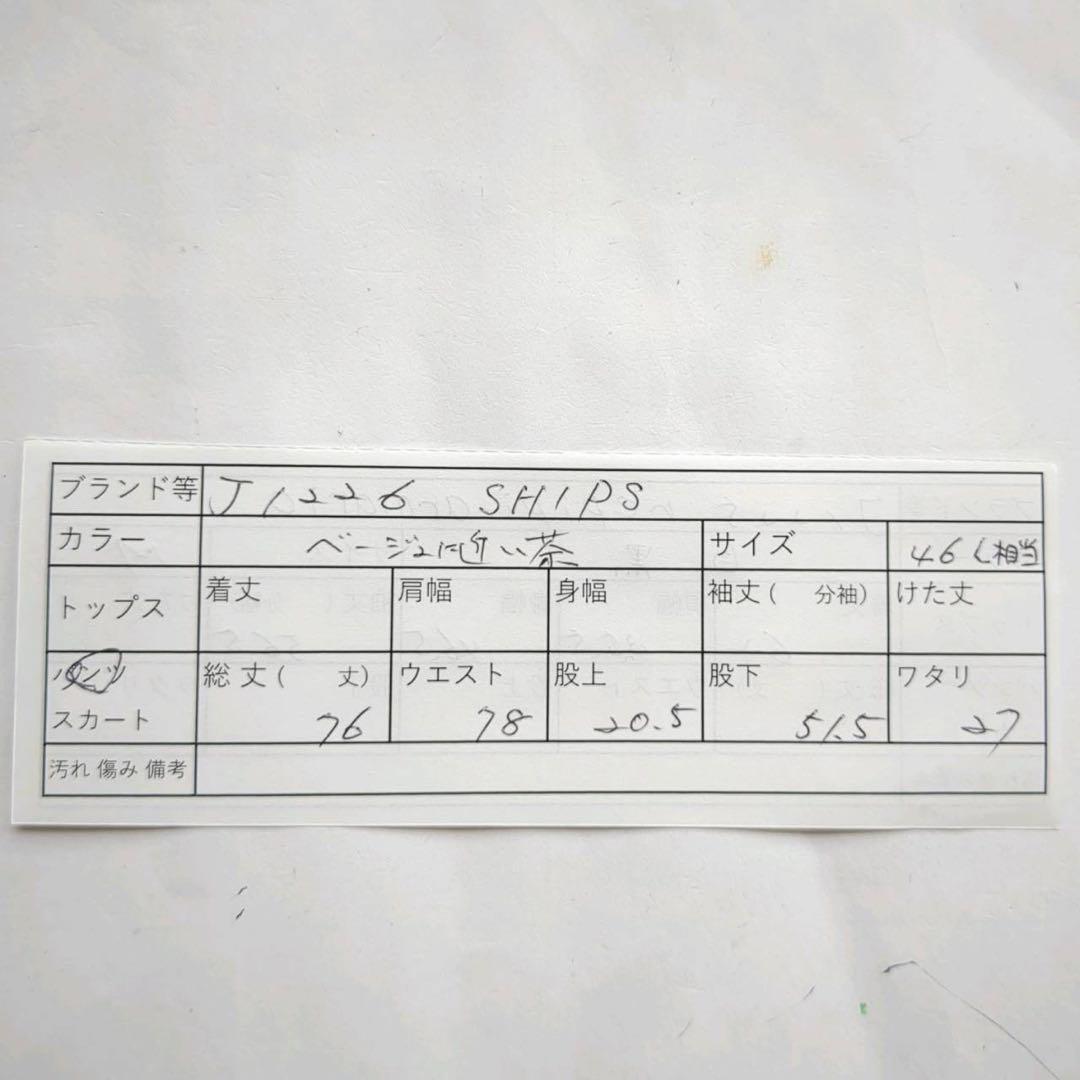 ブランド等 J1226 SHIPS
カラー ベージュに近い茶 サイズ 46 L相当
トップス 着丈 肩幅 身幅 袖丈( 分袖) けた丈
パンツ 総丈( 丈) ウエスト 股上 股下 ワタリ
スカート 76 78 20.5 51.5 27
汚れ 傷み 備考